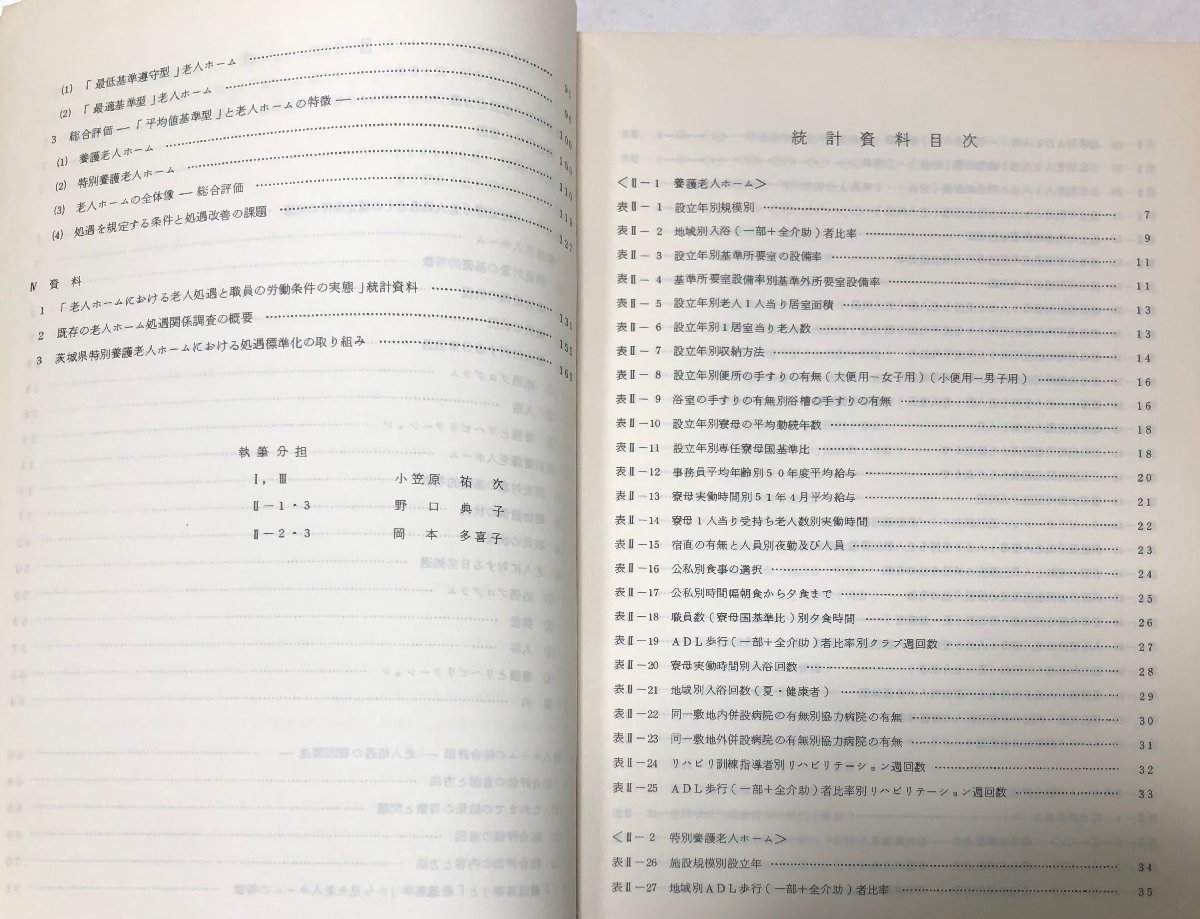 (1) 「最低基準遵守型」老人ホーム …… 81
(2) 「最適基準型」老人ホーム ……
3 総合評価 ―「平均値基準型」と老人ホームの特徴 ― …… 100
(1) 養護老人ホーム …… 100
(2) 特別養護老人ホーム …… 110
(3) 老人ホームの全体像 ― 総合評価 ……
(4) 処遇を規定する条件と処遇改善の課題 …… 127
Ⅳ 資料
1 「老人ホームにおける老人処遇と職員の労働条件の実態」統計資料 …… 131
2 既存の老人ホーム処遇関係調査の概要 …… 153
3 茨城県特別養護老人ホームにおける処遇標準化の取り組み …… 161
執筆分担
Ⅰ，Ⅲ 小笠原 祐次
Ⅱ－1・3 野口 典子
Ⅱ－2・3 岡本 多喜子
統計資料目次
＜Ⅱ－1 養護老人ホーム＞
表Ⅱ－1 設立年別規模別 …… 7
表Ⅱ－2 地域別入浴(一部＋全介助)者比率 …… 9
表Ⅱ－3 設立年別基準所要室の設備率 …… 11
表Ⅱ－4 基準所要室設備率別基準外所要室設備率 …… 11
表Ⅱ－5 設立年別老人1人当り居室面積 …… 13
表Ⅱ－6 設立年別1居室当り老人数 …… 13
表Ⅱ－7 設立年別収納方法 …… 14
表Ⅱ－8 設立年別便所の手すりの有無(大便用－女子用)(小便用－男子用) …… 16
表Ⅱ－9 浴室の手すりの有無別浴槽の手すりの有無 …… 16
表Ⅱ－10 設立年別寮母の平均勤続年数 …… 18
表Ⅱ－11 設立年別専任寮母国基準比 …… 18
表Ⅱ－12 事務員平均年齢別50年度平均給与 …… 20
表Ⅱ－13 寮母実働時間別51年4月平均給与 …… 21
表Ⅱ－14 寮母1人当り受持ち老人数別実働時間 …… 22
表Ⅱ－15 宿直の有無と人員別夜勤及び人員 …… 23
表Ⅱ－16 公私別食事の選択 …… 24
表Ⅱ－17 公私別時間幅朝食から夕食まで …… 25
表Ⅱ－18 職員数(寮母国基準比)別夕食時間 …… 26
表Ⅱ－19 ADL歩行(一部＋全介助)者比率別クラブ週回数 …… 27
表Ⅱ－20 寮母実働時間別入浴回数 …… 28
表Ⅱ－21 地域別入浴回数(夏・健康者) …… 29
表Ⅱ－22 同一敷地内併設病院の有無別協力病院の有無 …… 30
表Ⅱ－23 同一敷地外併設病院の有無別協力病院の有無 …… 31
表Ⅱ－24 リハビリ訓練指導者別リハビリテーション週回数 …… 32
表Ⅱ－25 ADL歩行(一部＋全介助)者比率別リハビリテーション週回数 …… 33
＜Ⅱ－2 特別養護老人ホーム＞
表Ⅱ－26 施設規模別設立年 …… 34
表Ⅱ－27 地域別ADL歩行(一部＋全介助)者比率 …… 35